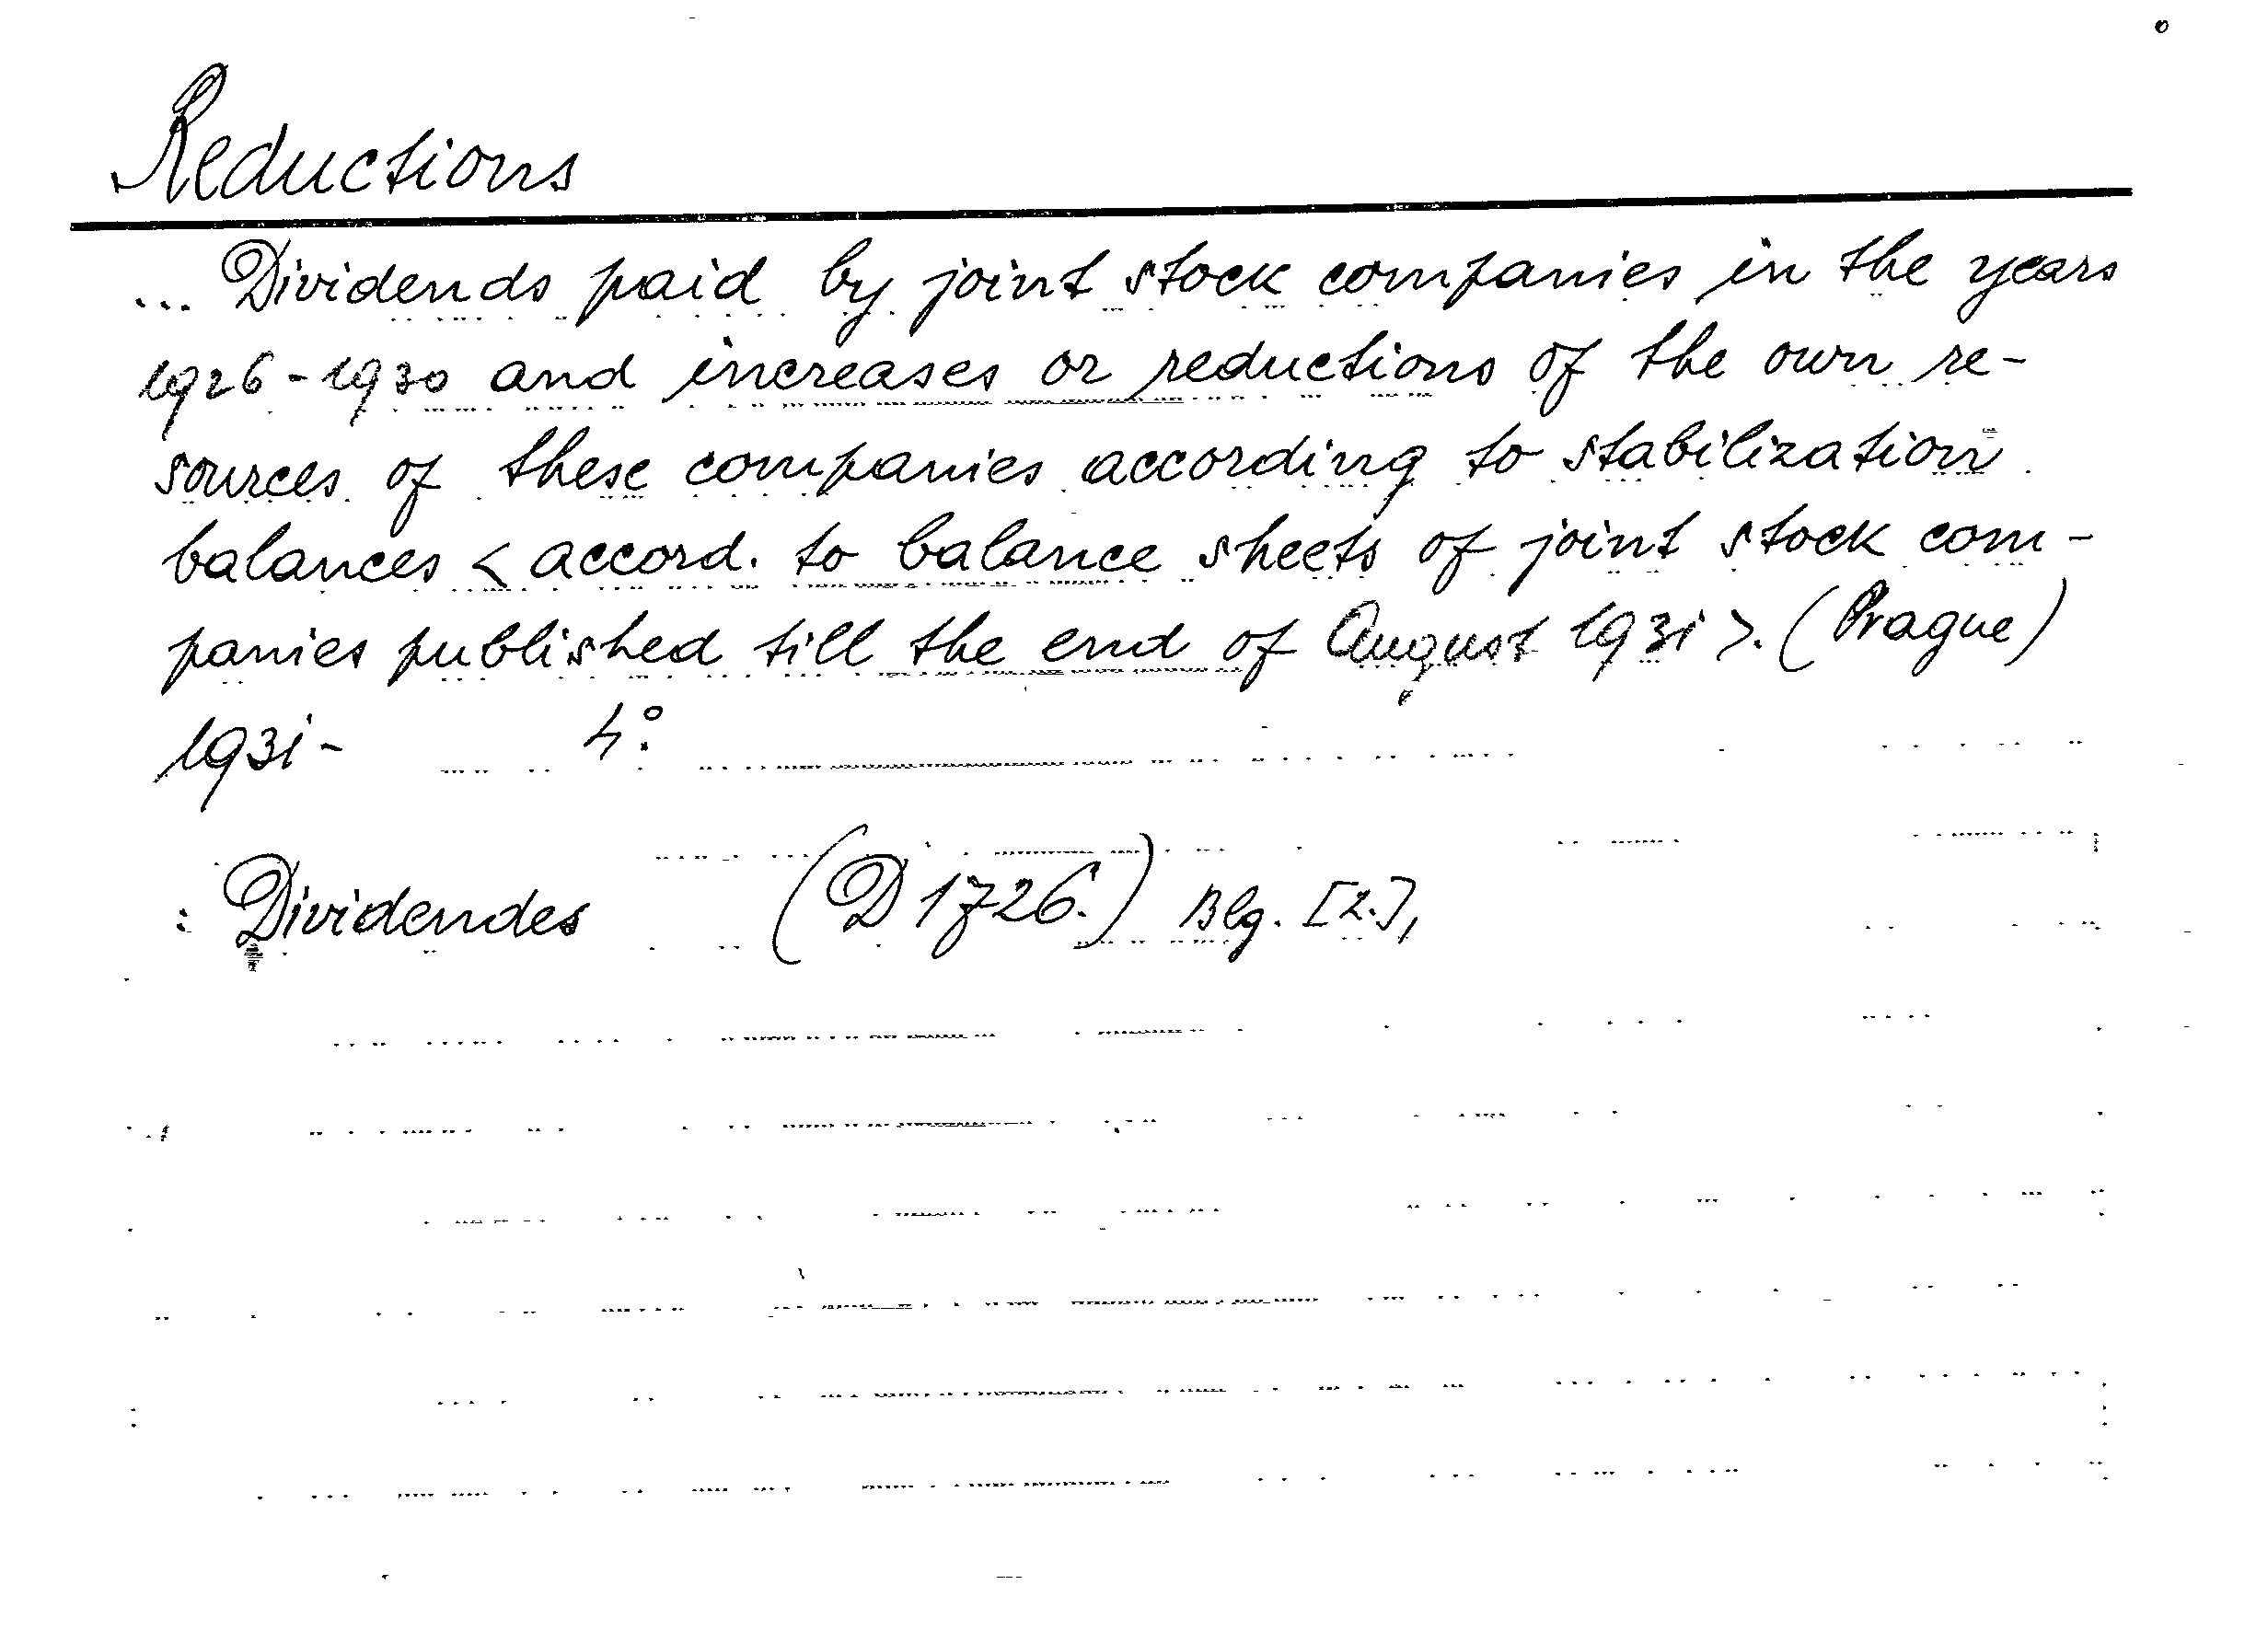 Reductions
... Dividends paid by joint stock companies in the years
1926-1930 and increases or reductions of the own re-
sources of these companies according to stabilization
balances < accord. to balance sheets of joint stock com-
panies published till the end of August 1931 >. (Prague)
1931- 4°.
: Dividendes (D 1726.) Blg. [2.],